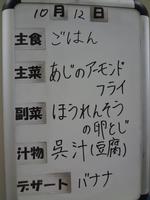 10月12日
主食 ごはん
主菜 あじのアーモンド
フライ
副菜 ほうれんそう
の卵とじ
汁物 呉汁(豆腐)
デザート バナナ